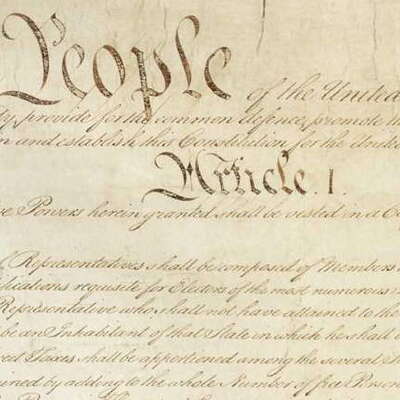 People of the United
provide for the common defence, promote
and establish this Constitution for the United
Article. I.
Powers herein granted shall be vested in a
Representatives shall be composed of Members
requisite for Electors of the most numerous
Representative who shall not have attained to the
be an Inhabitant of that State in which he shall
Taxes shall be apportioned among the several
by adding to the whole Number of free